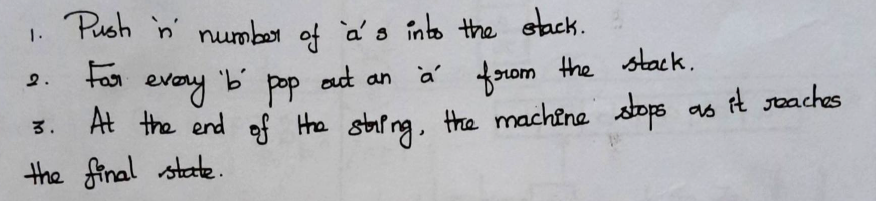 1. Push 'n' number of 'a's into the stack.
2. For every 'b' pop out an 'a' from the stack.
3. At the end of the string, the machine stops as it reaches
the final state.